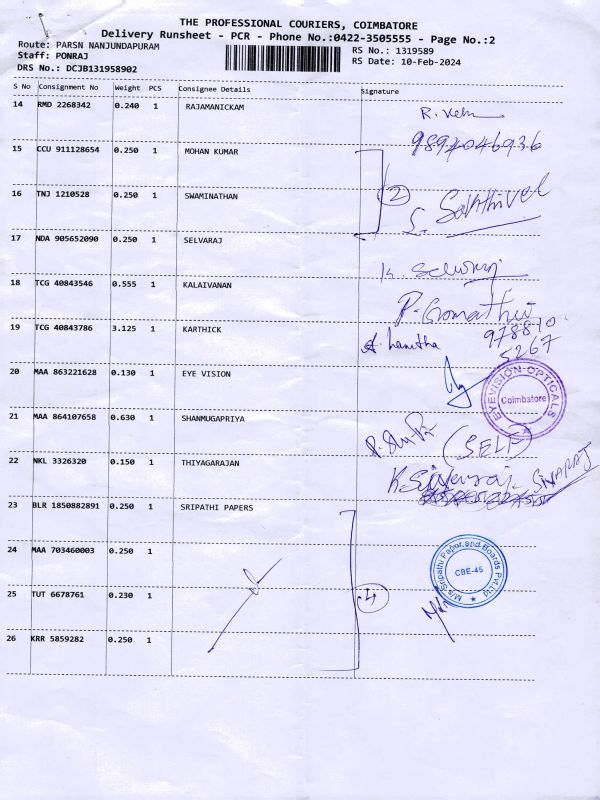 THE PROFESSIONAL COURIERS, COIMBATORE
Delivery Runsheet - PCR - Phone No.:0422-3505555 - Page No.:2
Route: PARSN NANJUNDAPURAM
RS No.: 1319589
Staff: PONRAJ
RS Date: 10-Feb-2024
DRS No.: DCJB131958902
S No Consignment No Weight PCS Consignee Details Signature
14 RMD 2268342 0.240 1 RAJAMANICKAM
9894046936
15 CCU 911128654 0.250 1 MOHAN KUMAR
16 TNJ 1210528 0.250 1 SWAMINATHAN
2
S. Sakthivel
17 NDA 905652090 0.250 1 SELVARAJ
K. Selvaraj
18 TCG 40843546 0.555 1 KALAIVANAN
P. Gomathi
19 TCG 40843786 3.125 1 KARTHICK
97880
5267
20 MAA 863221628 0.130 1 EYE VISION
EYEVISION OPTICALS
Coimbatore
21 MAA 864107658 0.630 1 SHANMUGAPRIYA
(SELF)
22 NKL 3326320 0.150 1 THIYAGARAJAN
K. Sivaraj SIVARAJ
23 BLR 1850882891 0.250 1 SRIPATHI PAPERS
24 MAA 703460003 0.250 1
M/s Sripathi Paper and Boards Pvt Ltd
CBE-45
25 TUT 6678761 0.230 1
4
26 KRR 5859282 0.250 1